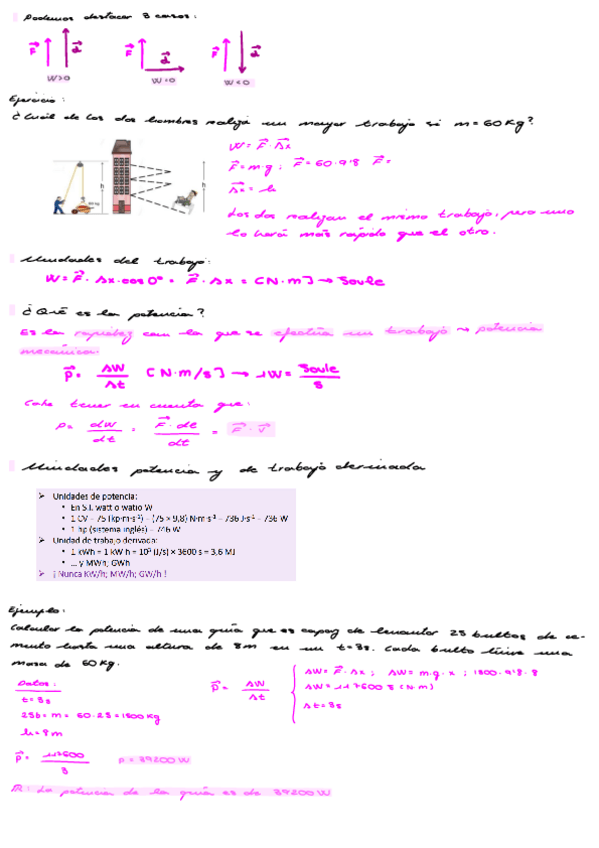 Podemos destacar 3 casos:
F d F d F d
W>0 W=0 W<0
Ejercicio:
¿Cuál de los dos hombres realiza un mayor trabajo si m=60Kg?
W = F · Δx
F = m·g ; F = 60·9'8 F =
Δx = h
h h
Los dos realizan el mismo trabajo, pero uno
lo hará más rápido que el otro.
Unidades del trabajo:
W = F · Δx·cos 0º = F · Δx = [N·m] → Joule
¿Qué es la potencia?
Es la rapidez con la que se efectúa un trabajo → potencia
mecánica.
P = ΔW/Δt [N·m/s] → 1W = Joule/s
Cabe tener en cuenta que:
P = dW/dt = F · dr/dt = F · v
Unidades potencia y de trabajo derivada
Unidades de potencia:
• En S.I. watt o watio W
• 1 CV = 75 (kp·m·s⁻¹) = (75 × 9,8) N·m·s⁻¹ = 736 J·s⁻¹ = 736 W
• 1 hp (sistema inglés) = 746 W
Unidad de trabajo derivada:
• 1 kWh = 1 kW h = 10³ (J/s) × 3600 s = 3,6 MJ
• ... y MWh; GWh
¡ Nunca KW/h; MW/h; GW/h !
Ejemplo:
Calcular la potencia de una grúa que es capaz de levantar 25 bultos de ce-
mento hasta una altura de 8m en un t=3s. Cada bulto tiene una
masa de 60Kg.
Datos:
t = 3s
25b = m = 60·25 = 1500 Kg
h = 8m
P = ΔW/Δt
ΔW = F · Δx ; ΔW = m·g·x ; 1500·9'8·8
ΔW = 117600 J (N·m)
Δt = 3s
P = 117600/3 P = 39200 W
R: La potencia de la grúa es de 39200 W